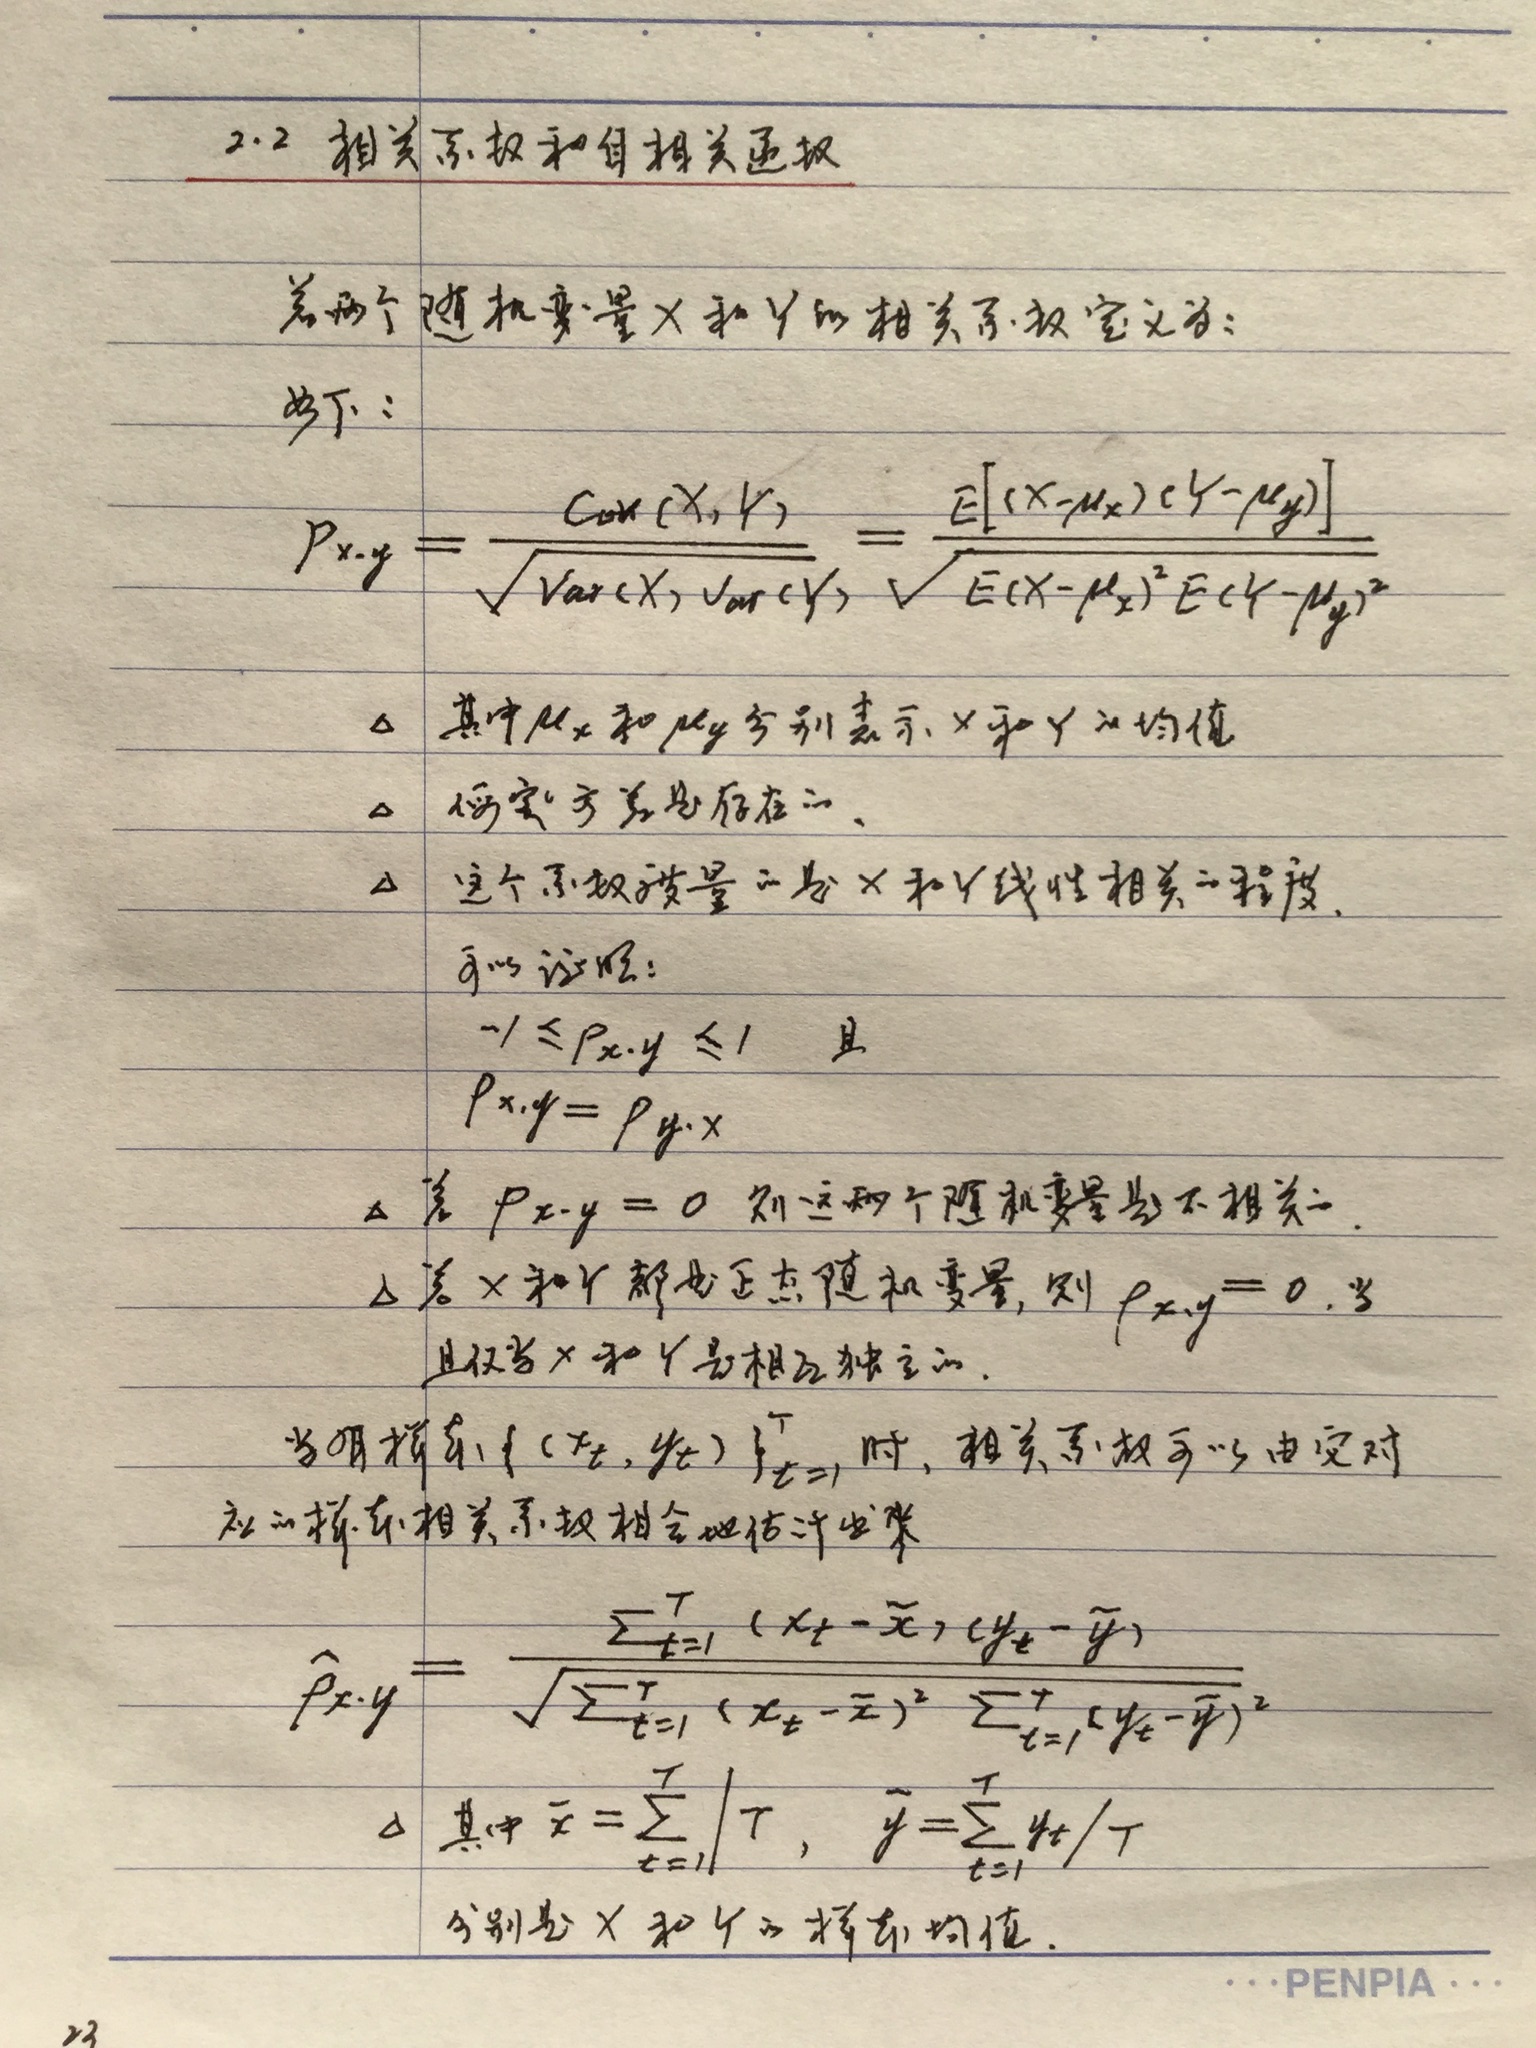 2.2 相关系数和自相关函数
若两个随机变量X和Y的相关系数定义为：
如下：
ρx.y = Cov(X,Y) / √Var(X)Var(Y) = E[(X-μx)(Y-μy)] / √E(X-μx)² E(Y-μy)²
△ 其中μx和μy分别表示X和Y的均值
△ 假定方差是存在的、
△ 这个系数度量的是X和Y线性相关的程度、
可以证明：
-1 ≤ ρx.y ≤ 1 且
ρx.y = ρy.x
△ 若 ρx.y = 0 则这两个随机变量是不相关的.
△ 若X和Y都是正态随机变量，则 ρx.y = 0 . 当
且仅当X和Y是相互独立的.
当有样本{(xt, yt)}ᵀt=1时，相关系数可以由它对
应的样本相关系数相合地估计出来
ρ̂x.y = Σᵀt=1 (xt - x̄)(yt - ȳ) / √Σᵀt=1 (xt - x̄)² Σᵀt=1 (yt - ȳ)²
△ 其中 x̄ = Σᵀt=1 / T , ȳ = Σᵀt=1 yt / T
分别是X和Y的样本均值.
···PENPIA···
23